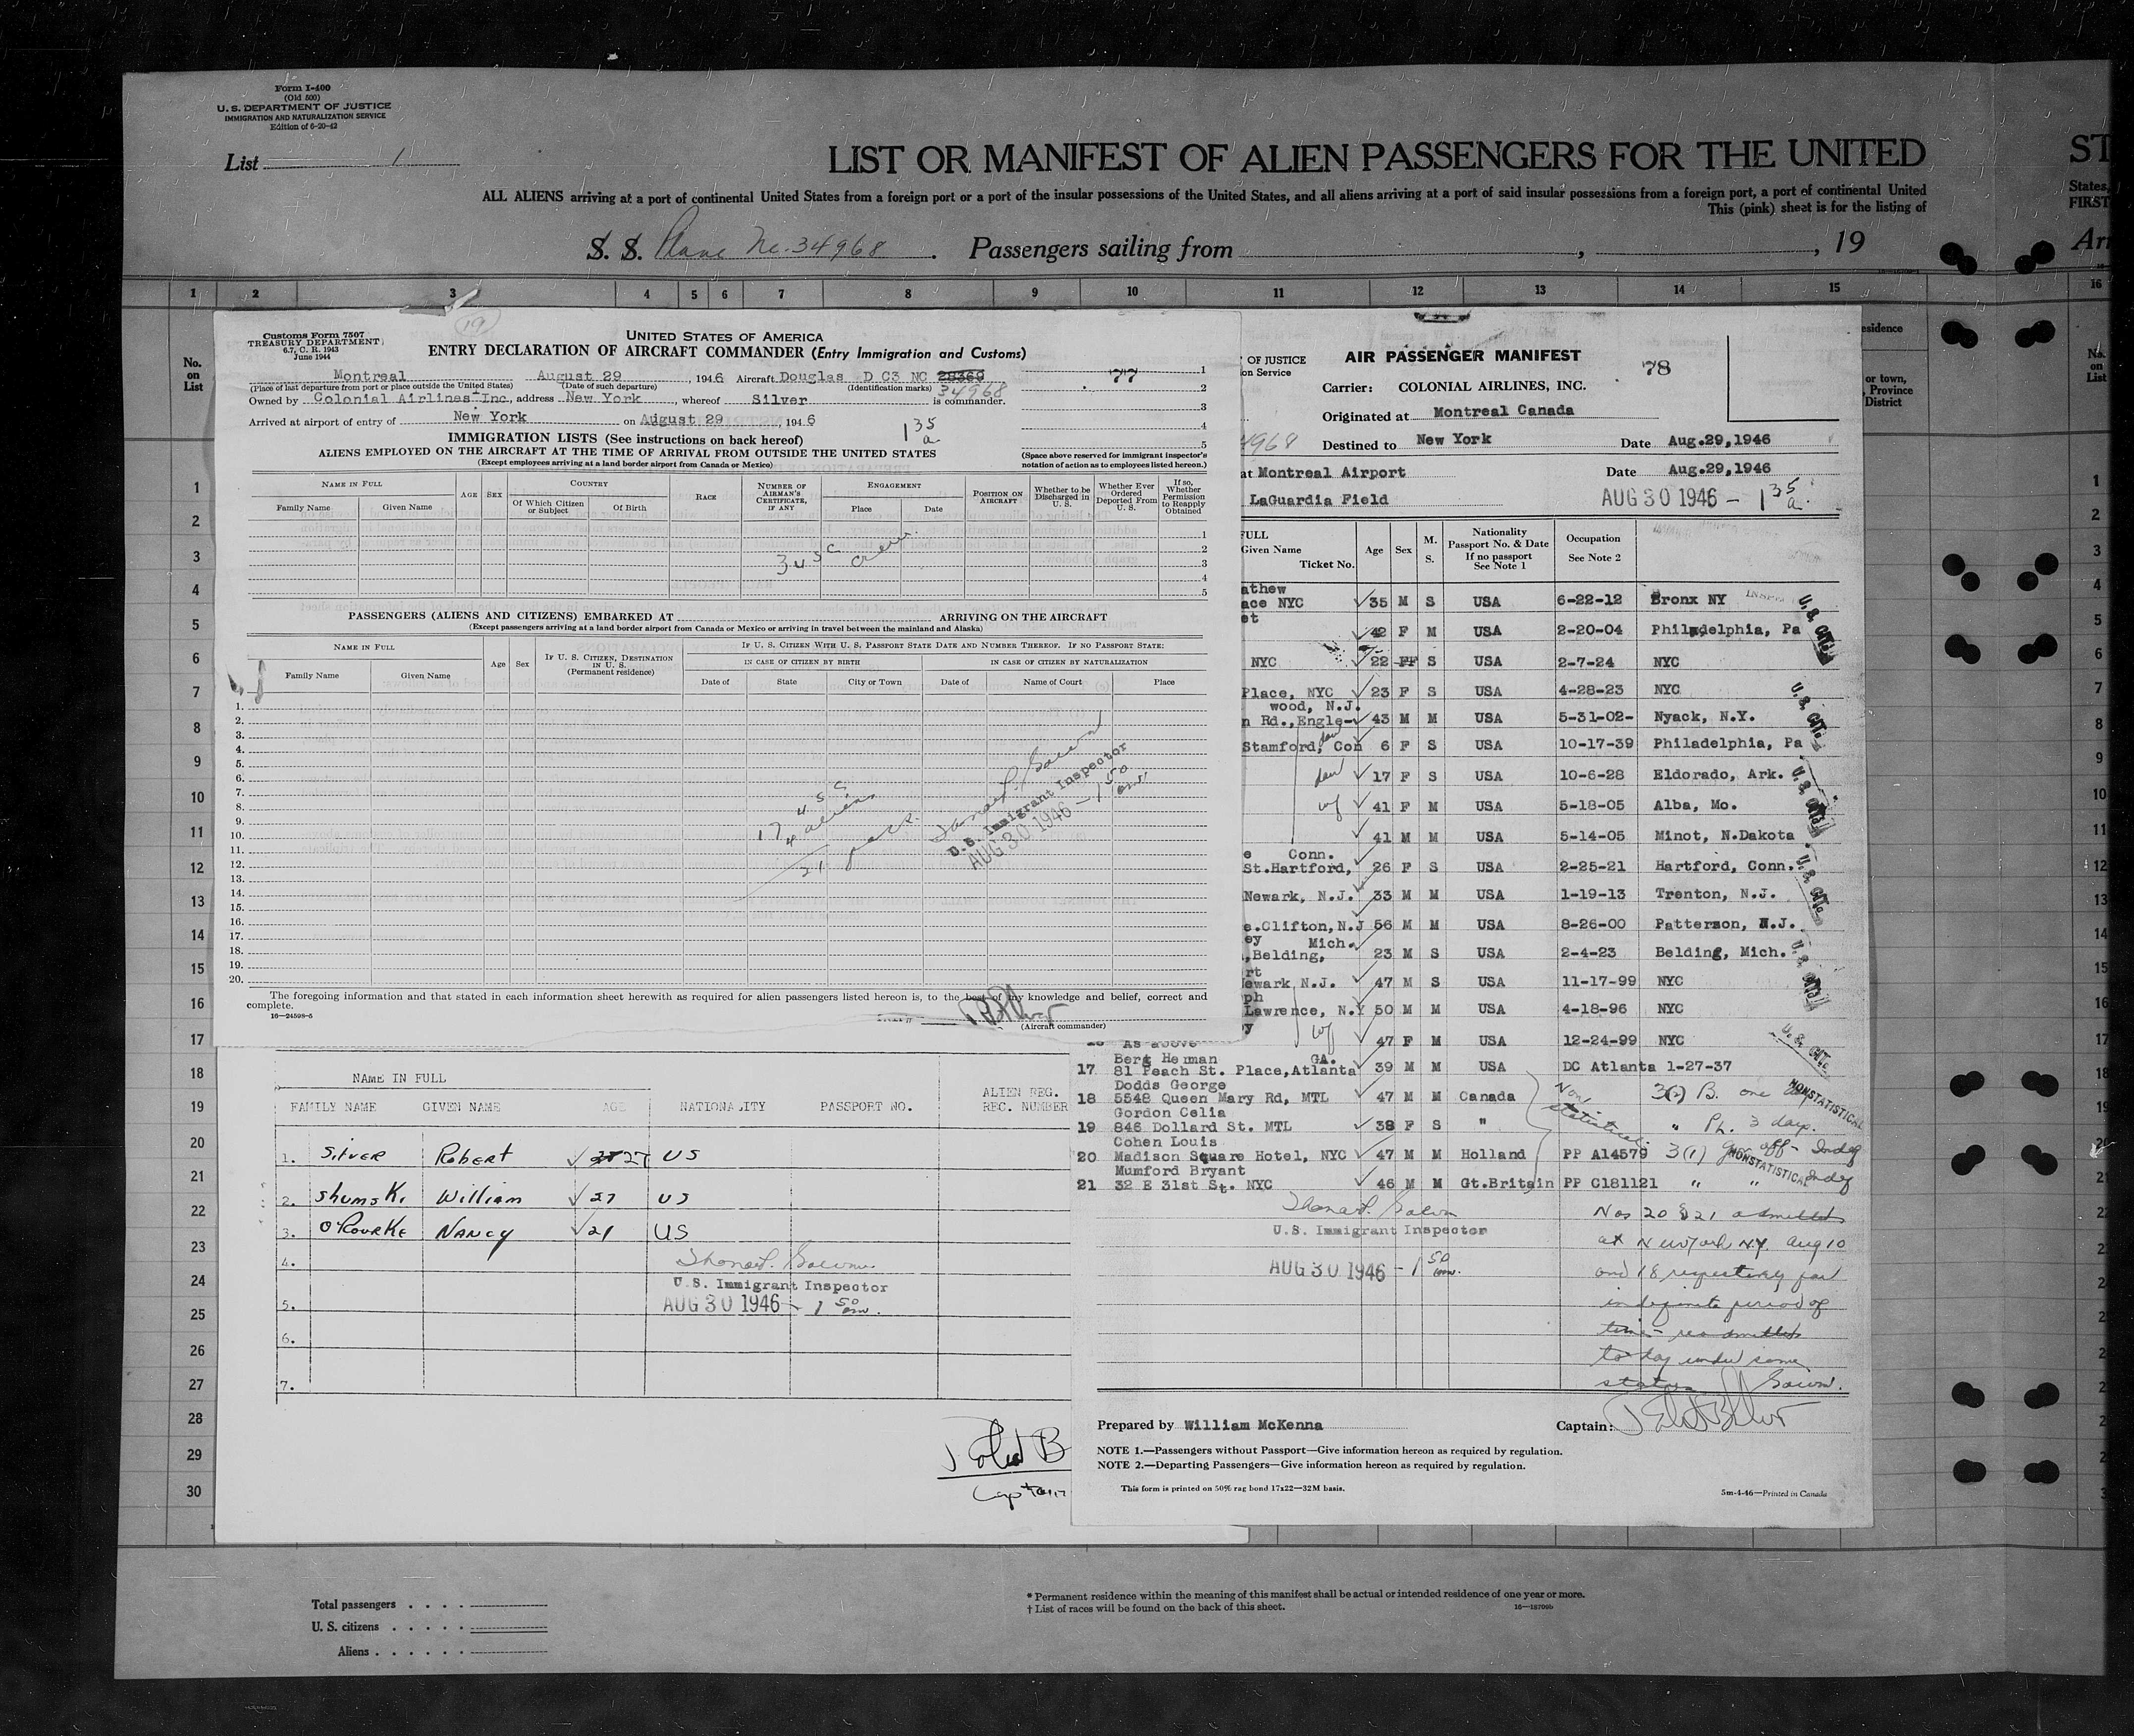 Form I-400
(Old 500)
U. S. DEPARTMENT OF JUSTICE
IMMIGRATION AND NATURALIZATION SERVICE
Edition of 6-20-42
List 1
LIST OR MANIFEST OF ALIEN PASSENGERS FOR THE UNITED
ST
ALL ALIENS arriving at a port of continental United States from a foreign port or a port of the insular possessions of the United States, and all aliens arriving at a port of said insular possessions from a foreign port, a port of continental United
States,
This (pink) sheet is for the listing of
FIRST
S. S. Plane No. 34968. Passengers sailing from , , 19
Arr
1 2 3 4 5 6 7 8 9 10 11 12 13 14 15 16
No. on List
19
Customs Form 7507
TREASURY DEPARTMENT
6.7, C. R. 1943
June 1944
UNITED STATES OF AMERICA
ENTRY DECLARATION OF AIRCRAFT COMMANDER (Entry Immigration and Customs)
Montreal August 29, 1946 Aircraft Douglas D C3 NC 28360 34968
(Place of last departure from port or place outside the United States) (Date of departure) (Identification marks)
Owned by Colonial Airlines Inc, address New York, whereof Silver is commander.
Arrived at airport of entry of New York on August 29, 1946
77
1
2
3
4
5
1 35 a
IMMIGRATION LISTS (See instructions on back hereof)
ALIENS EMPLOYED ON THE AIRCRAFT AT THE TIME OF ARRIVAL FROM OUTSIDE THE UNITED STATES
(Except employees arriving at a land border airport from Canada or Mexico)
(Space above reserved for immigrant inspector's notation of action as to employees listed hereon.)
NAME IN FULL AGE SEX COUNTRY RACE NUMBER OF AIRMAN'S CERTIFICATE, IF ANY ENGAGEMENT POSITION ON AIRCRAFT Whether to be Discharged in U. S. Whether Ever Ordered Deported From U. S. If so, Whether Permission to Reapply Obtained
Family Name Given Name Of Which Citizen or Subject Of Birth Place Date
1
2
3
4
5
3 usc crew
PASSENGERS (ALIENS AND CITIZENS) EMBARKED AT ARRIVING ON THE AIRCRAFT
(Except passengers arriving at a land border airport from Canada or Mexico or arriving in travel between the mainland and Alaska)
NAME IN FULL Age Sex IF U. S. CITIZEN, DESTINATION IN U. S. (Permanent residence) IF U. S. CITIZEN WITH U. S. PASSPORT STATE DATE AND NUMBER THEREOF. IF NO PASSPORT STATE:
IN CASE OF CITIZEN BY BIRTH IN CASE OF CITIZEN BY NATURALIZATION
Family Name Given Name Date of State City or Town Date of Name of Court Place
1.
2.
3.
4.
5.
6.
7.
8.
9.
10.
11.
12.
13.
14.
15.
16.
17.
18.
19.
20.
17 usc
4 aliens
21 pass.
U.S. Immigrant Inspector
AUG 30 1946 - 1 50 am
The foregoing information and that stated in each information sheet herewith as required for alien passengers listed hereon is, to the best of my knowledge and belief, correct and
complete.
16-24598-5
(Aircraft commander)
NAME IN FULL
FAMILY NAME GIVEN NAME AGE NATIONALITY PASSPORT NO. ALIEN REG. REC. NUMBER
1. Silver Robert 27 US
2. Shumski William 27 US
3. O'Rourke Nancy 21 US
4.
U.S. Immigrant Inspector
AUG 30 1946 - 1 50 am.
5.
6.
7.
Captain
OF JUSTICE
on Service
AIR PASSENGER MANIFEST
78
Carrier: COLONIAL AIRLINES, INC.
Originated at Montreal Canada
4968
Destined to New York Date Aug.29,1946
at Montreal Airport Date Aug.29,1946
LaGuardia Field AUG 30 1946 - 1 35 a.
FULL
Given Name Ticket No. Age Sex M. S. Nationality Passport No. & Date If no passport See Note 1 Occupation See Note 2
athew
ace NYC 35 M S USA 6-22-12 Bronx NY
et
42 F M USA 2-20-04 Philadelphia, Pa
NYC 22 F S USA 2-7-24 NYC
Place, NYC 23 F S USA 4-28-23 NYC
wood, N.J.
n Rd.,Engle- 43 M M USA 5-31-02- Nyack, N.Y.
Stamford, Con 6 F S USA 10-17-39 Philadelphia, Pa
dau 17 F S USA 10-6-28 Eldorado, Ark.
wf 41 F M USA 5-18-05 Alba, Mo.
41 M M USA 5-14-05 Minot, N.Dakota
e Conn.
St.Hartford, 26 F S USA 2-25-21 Hartford, Conn.
Newark, N.J. 33 M M USA 1-19-13 Trenton, N.J.
e.Clifton,N.J 56 M M USA 8-26-00 Patterson, N.J.
ey Mich.
,Belding, 23 M S USA 2-4-23 Belding, Mich.
rt
ewark N.J. 47 M S USA 11-17-99 NYC
ph
Lawrence, N.Y 50 M M USA 4-18-96 NYC
y wf
As above 47 F M USA 12-24-99 NYC
Berg Herman GA.
17 81 Peach St. Place,Atlanta 39 M M USA DC Atlanta 1-27-37
Dodds George
18 5548 Queen Mary Rd, MTL 47 M M Canada 3(2) B. one day
Gordon Celia
19 846 Dollard St. MTL 38 F S " " Pl. 3 days.
Non statistical
Cohen Louis
20 Madison Square Hotel, NYC 47 M M Holland PP A14579 3(1) Gov off - Indef
Mumford Bryant
21 32 E 31st St. NYC 46 M M Gt.Britain PP C181121 " " Indef
U. S. CIT.
NONSTATISTICAL
NONSTATISTICAL
U.S. Immigrant Inspector
AUG 30 1946 - 1 50 am.
Nos 20 & 21 admitted
at New York N.Y. Aug 10
and 18 respectively for
indefinite period of
time - readmitted
today under same
status
Prepared by William McKenna Captain:
NOTE 1.—Passengers without Passport—Give information hereon as required by regulation.
NOTE 2.—Departing Passengers—Give information hereon as required by regulation.
This form is printed on 50% rag bond 17x22—32M basis.
5m-4-46—Printed in Canada
esidence
or town,
, Province
District
1
2
3
4
5
6
7
8
9
10
11
12
13
14
15
16
17
18
19
20
21
22
23
24
25
26
27
28
29
30
Total passengers
U. S. citizens
Aliens
* Permanent residence within the meaning of this manifest shall be actual or intended residence of one year or more.
† List of races will be found on the back of this sheet.
16-18709b